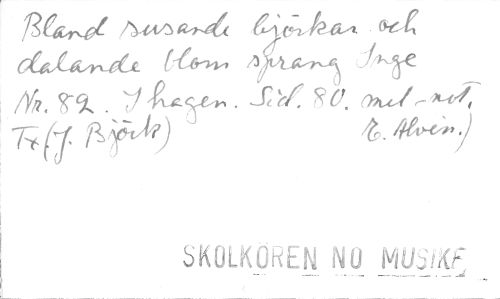 Bland susande björkar och
dalande blom sprang Inge
Nr. 82. I hagen. Sid. 80. mel-not.
Tx (J. Björk) E. Alvin.)
SKOLKÖREN NO MUSIKF